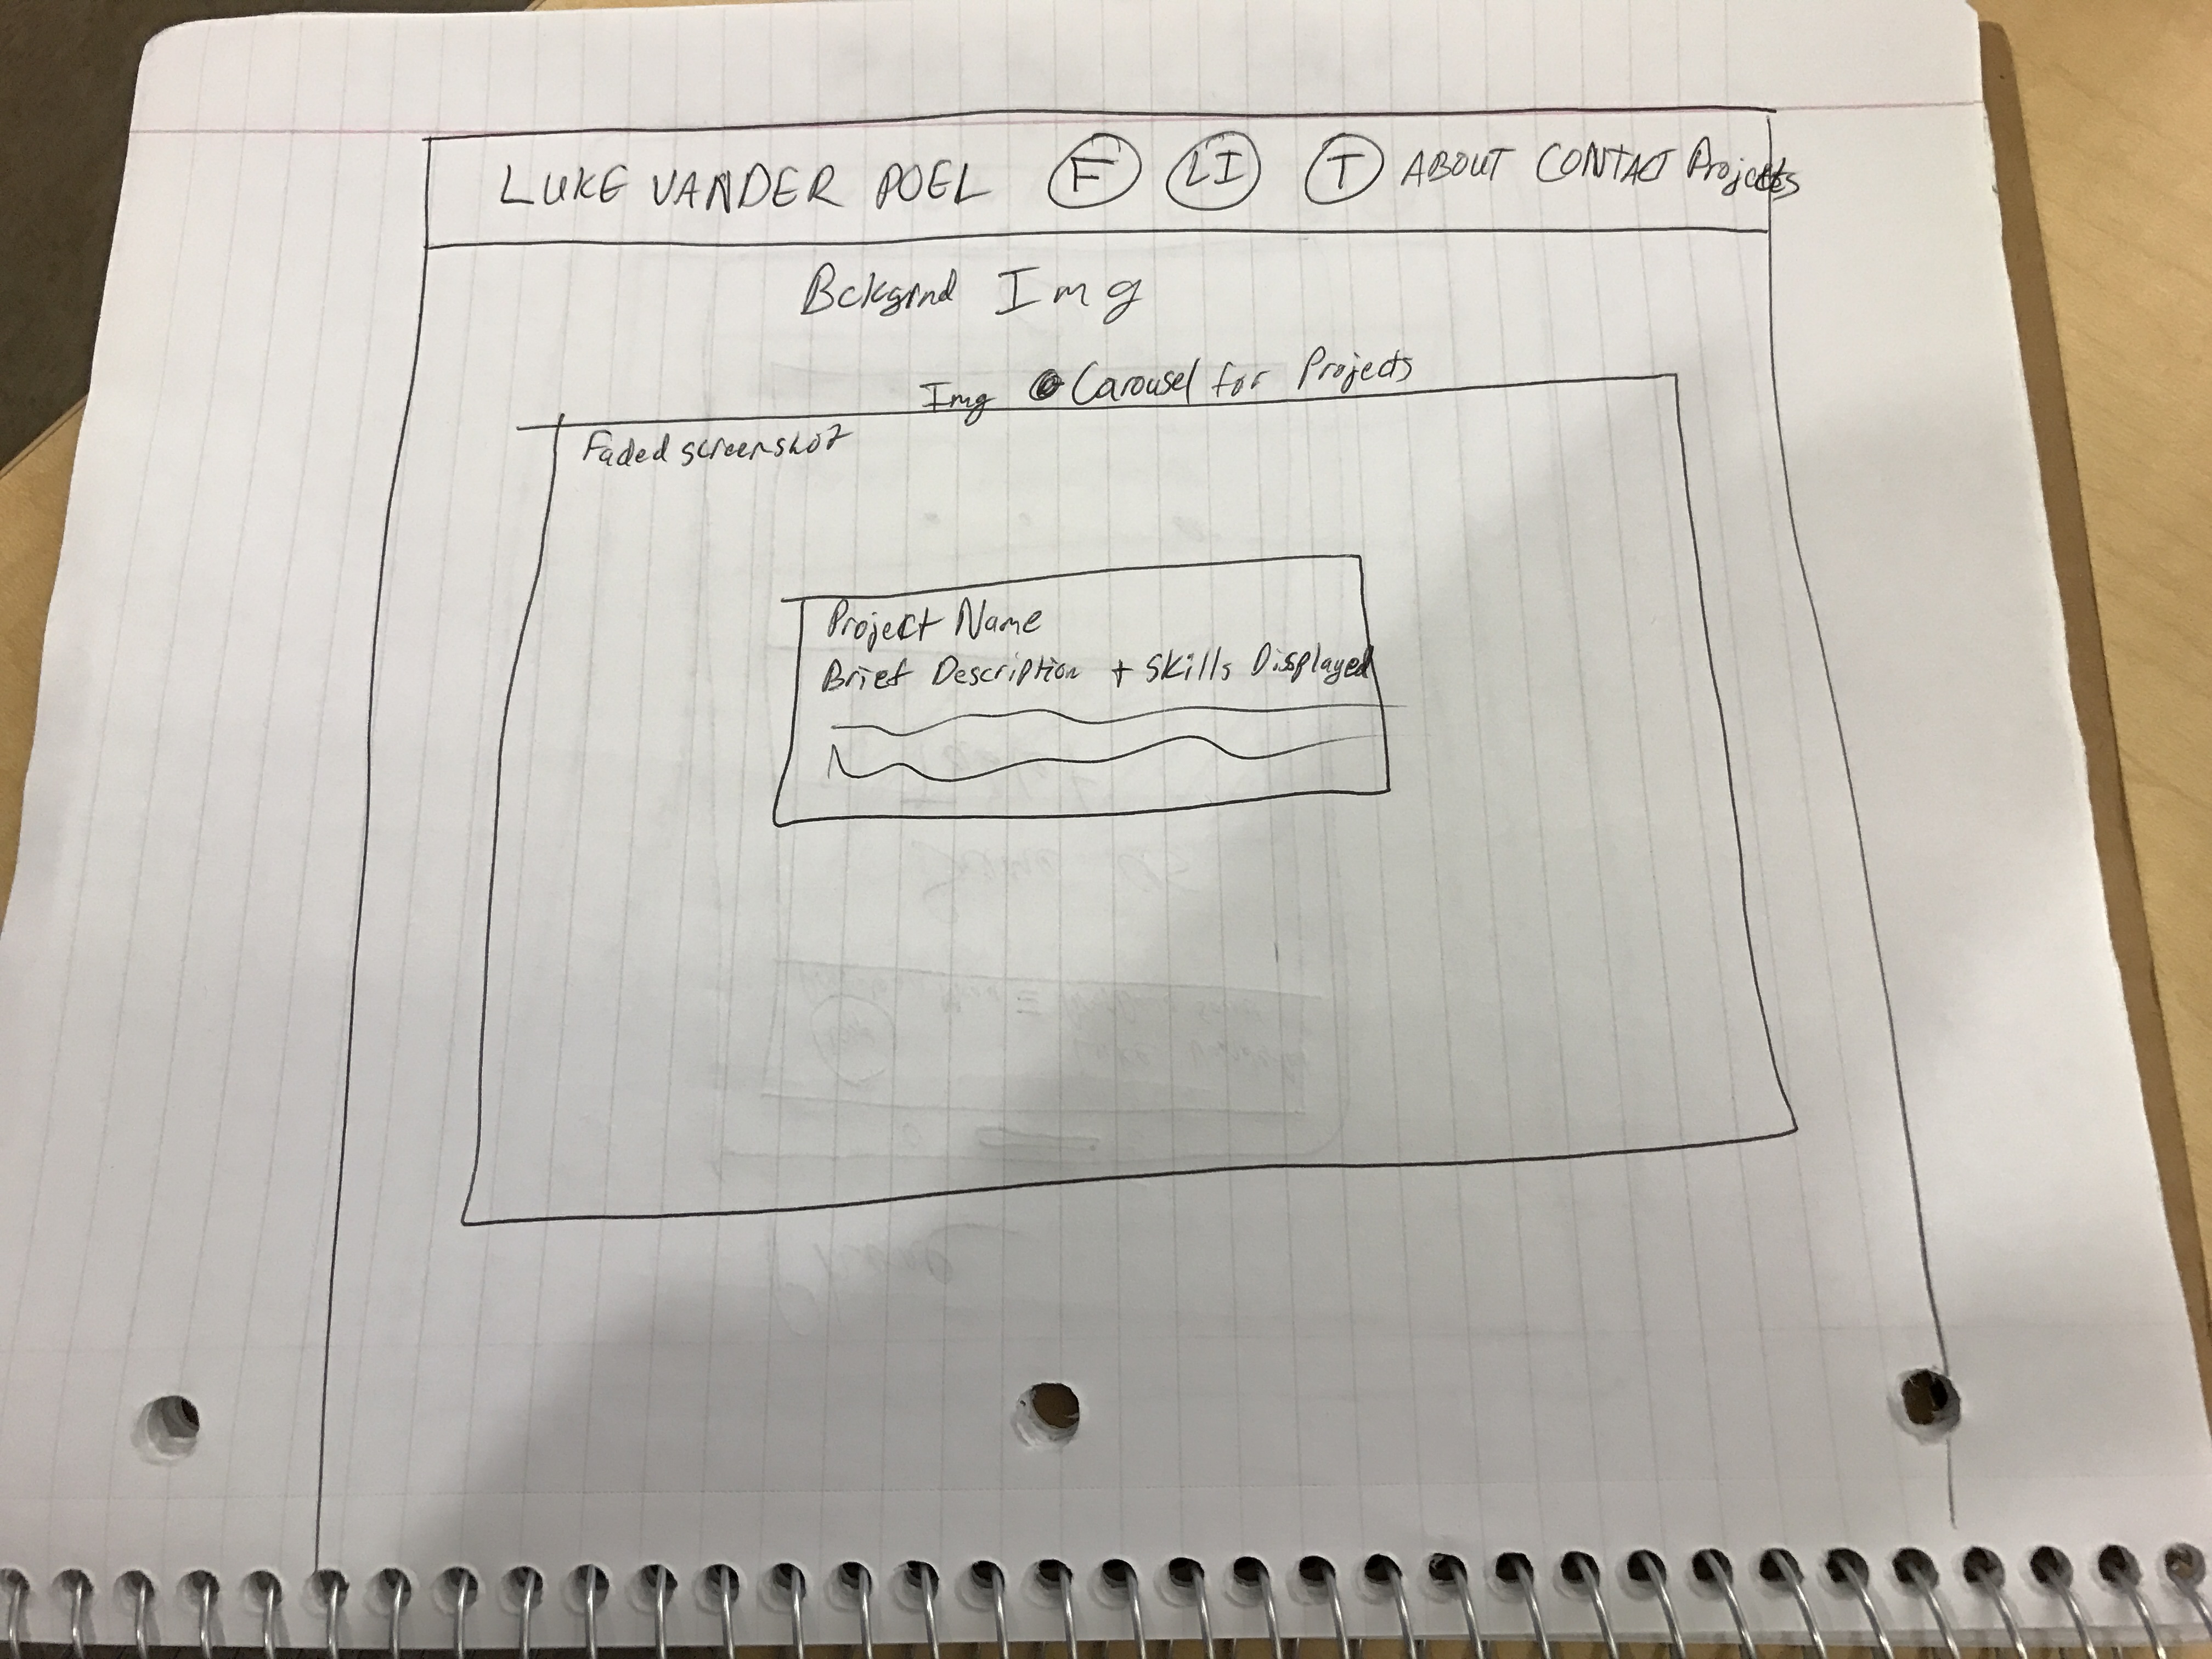 LUKE VANDER POEL F LI T ABOUT CONTACT Projects
Bckgrnd Img
Img Carousel for Projects
Faded screenshot
Project Name
Brief Description + Skills Displayed